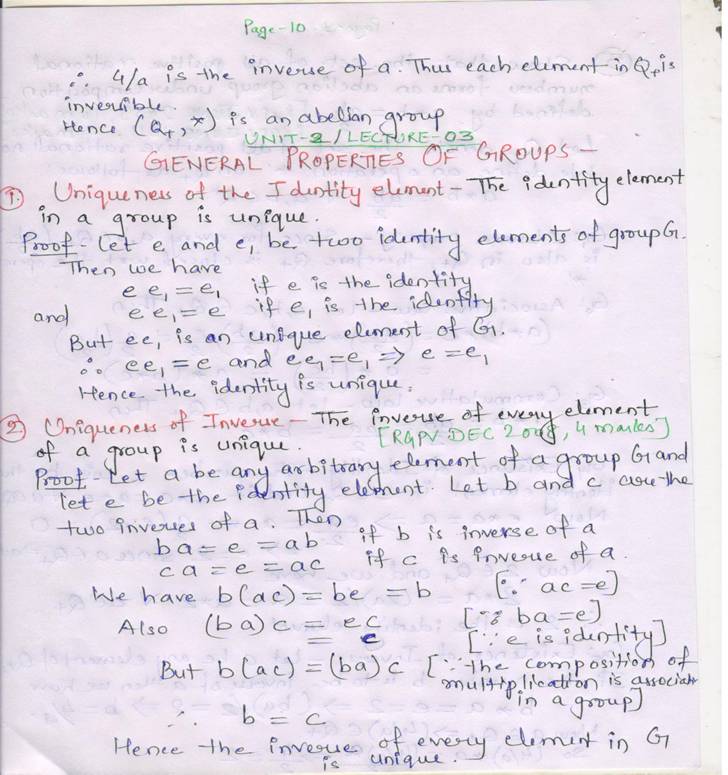 Page-10
∴ 4/a is the inverse of a. Thus each element in Q₊ is
invertible.
Hence (Q₊, *) is an abelian group
UNIT-2/LECTURE-03
GENERAL PROPERTIES OF GROUPS-
1. Uniqueness of the Identity element - The identity element
in a group is unique.
Proof - Let e and e₁ be two identity elements of group G.
Then we have
e e₁ = e₁ if e is the identity
and e e₁ = e if e₁ is the identity
But ee₁ is an unique element of G.
∴ ee₁ = e and ee₁ = e₁ ⇒ e = e₁
Hence the identity is unique.
2. Uniqueness of Inverse - The inverse of every element
of a group is unique. [RGPV DEC 2008, 4 marks]
Proof - Let a be any arbitrary element of a group G and
let e be the identity element. Let b and c are the
two inverses of a. Then
ba = e = ab if b is inverse of a
ca = e = ac if c is inverse of a.
We have b(ac) = be = b [∵ ac = e]
Also (ba)c = ec [∵ ba = e]
= c [∵ e is identity]
But b(ac) = (ba)c [∵ the composition of
multiplication is associati
in a group]
∴ b = c
Hence the inverse of every element in G
is unique.